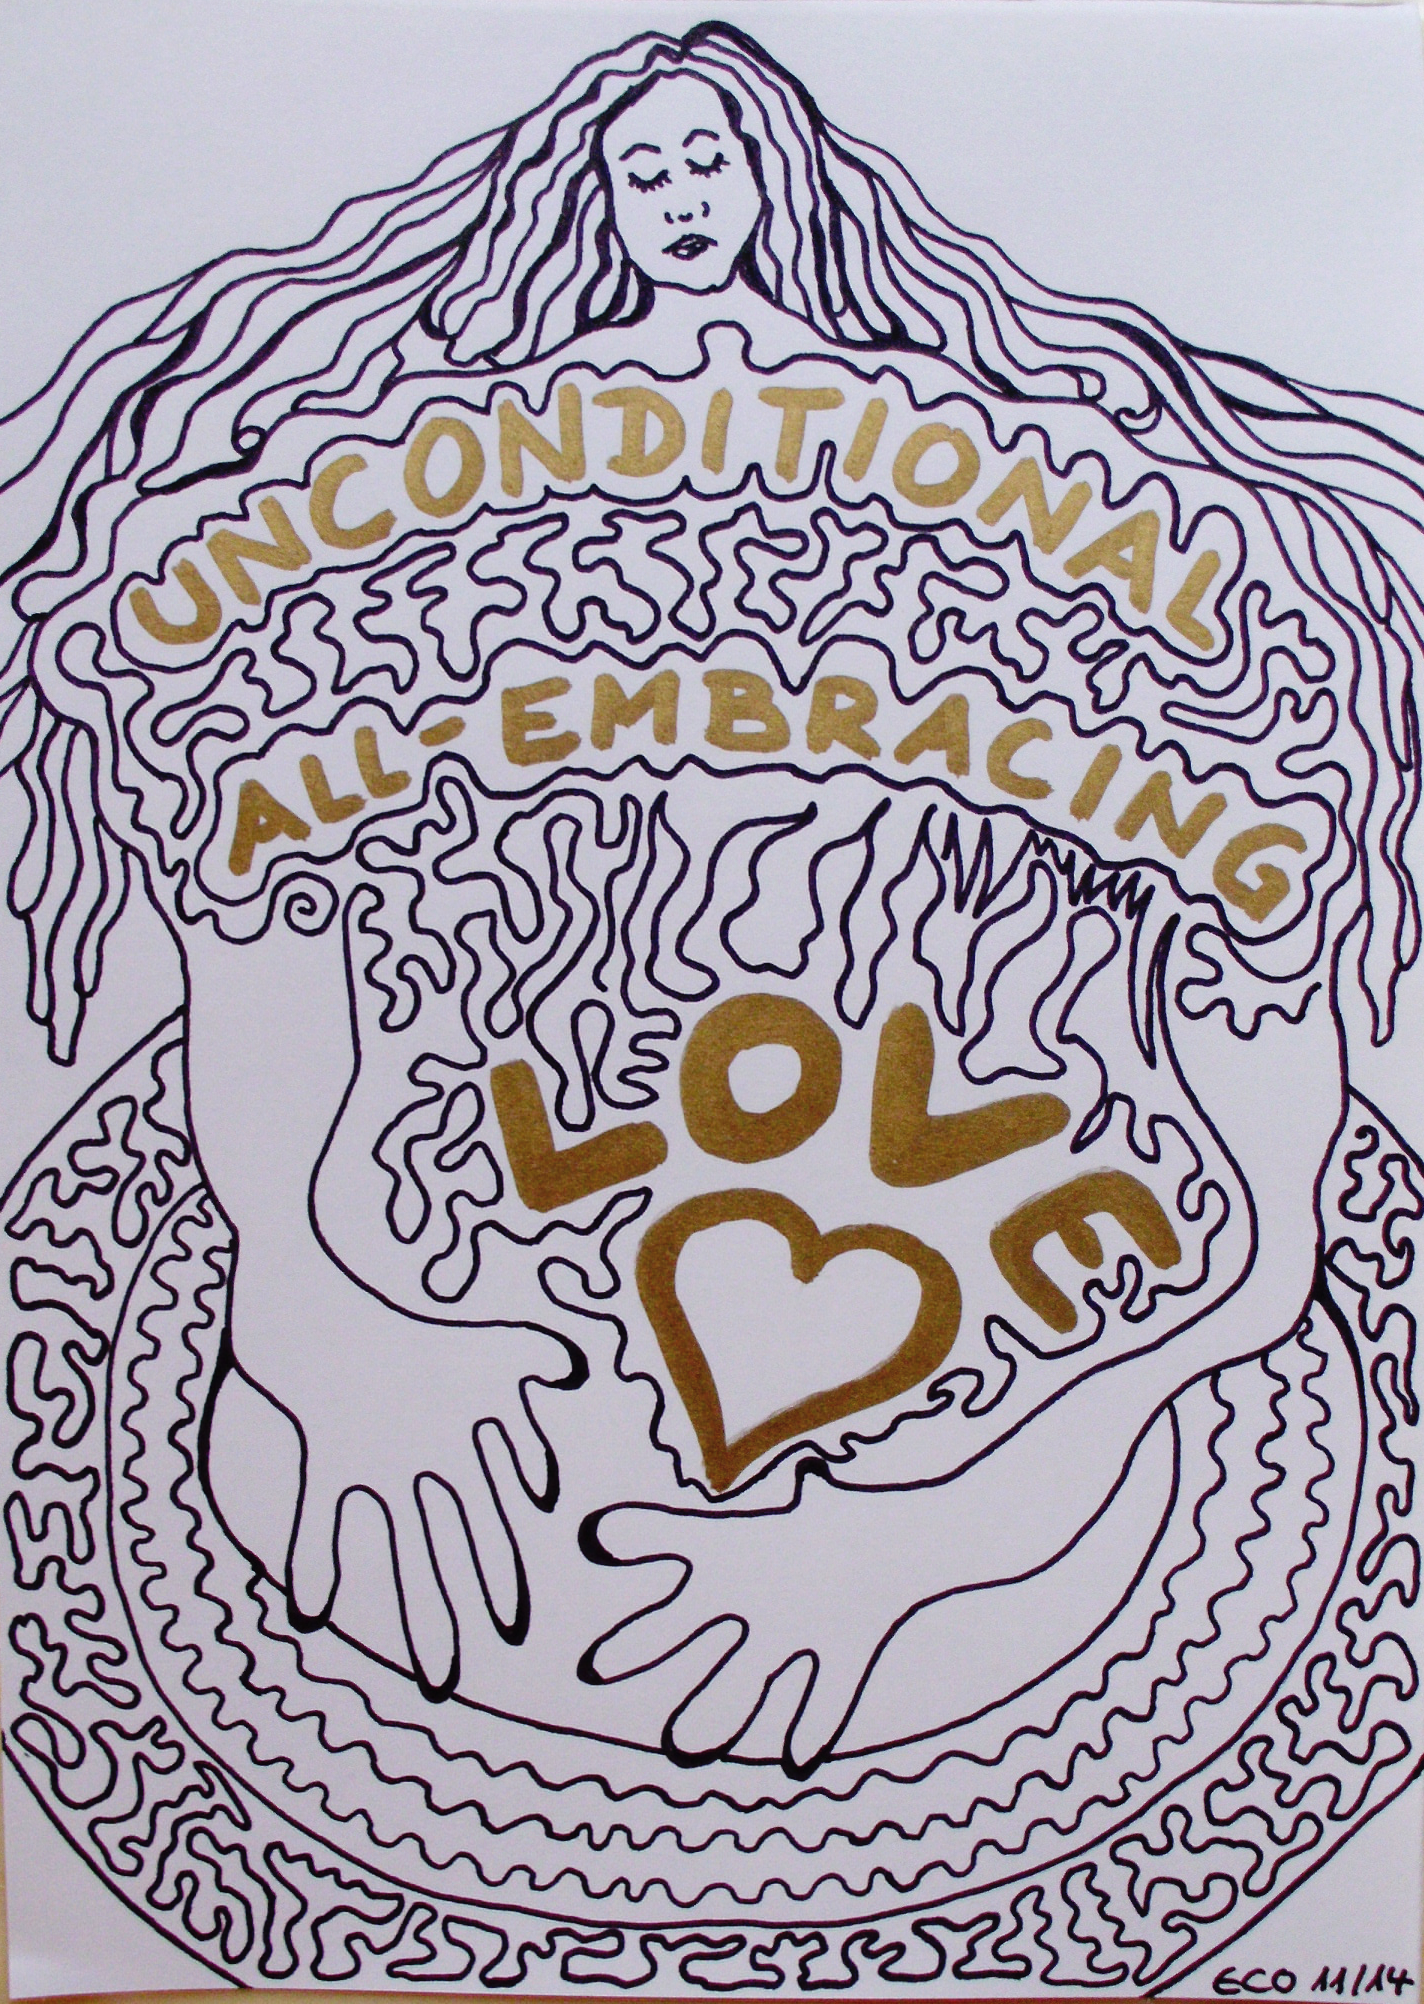 UNCONDITIONAL
ALL-EMBRACING
LOVE
ECO 11/14